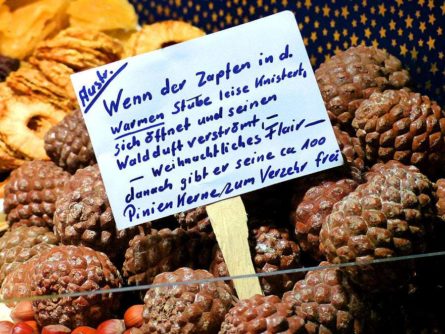 Austr.
Wenn der Zapfen in d.
warmen Stube leise Knistert,
sich öffnet und seinen
Walduft verströmt, –
– Weihnachtliches Flair –
danach gibt er seine ca 100
Pinien Kerne/zum Verzehr frei